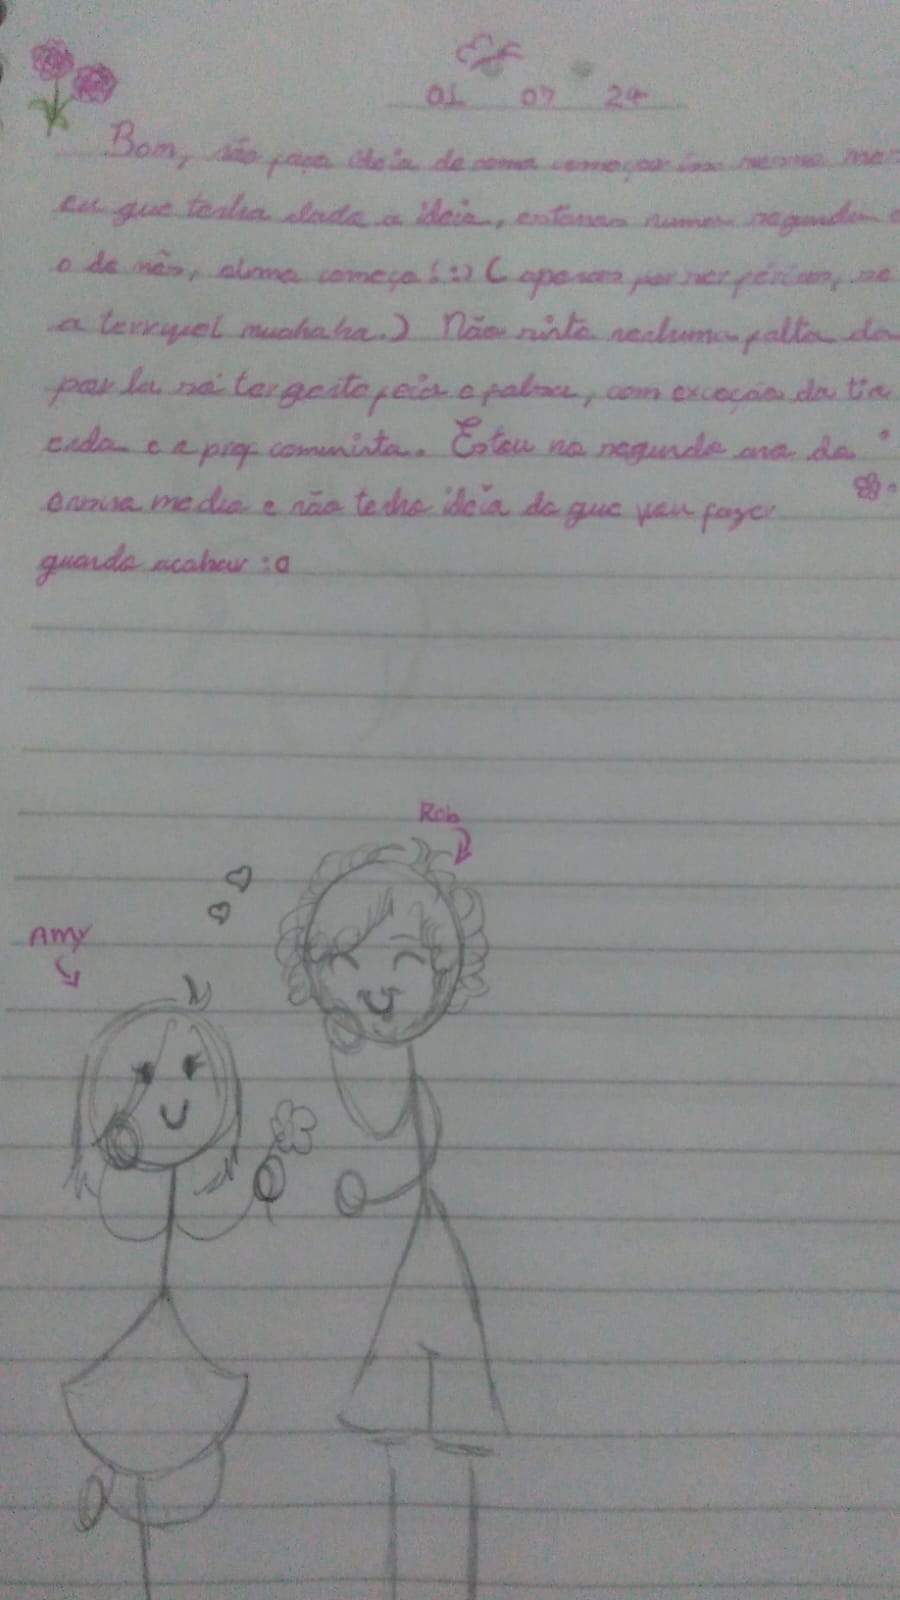 01 07 24
Bom, não faço ideia de como começar isso mesmo
eu que tenha dado a ideia, estamos numa segunda
o de nós, alma começa! :) (apenas por ser férias, se
a terrível muahaha.) Não sinto nenhuma falta da
por la só ter gente feia e falsa, com exceção da tia
cida e a prof comunista. Estou no segundo ano do
ensino medio e não tenho ideia do que vou fazer
quando acabar :o
Rob
AMY